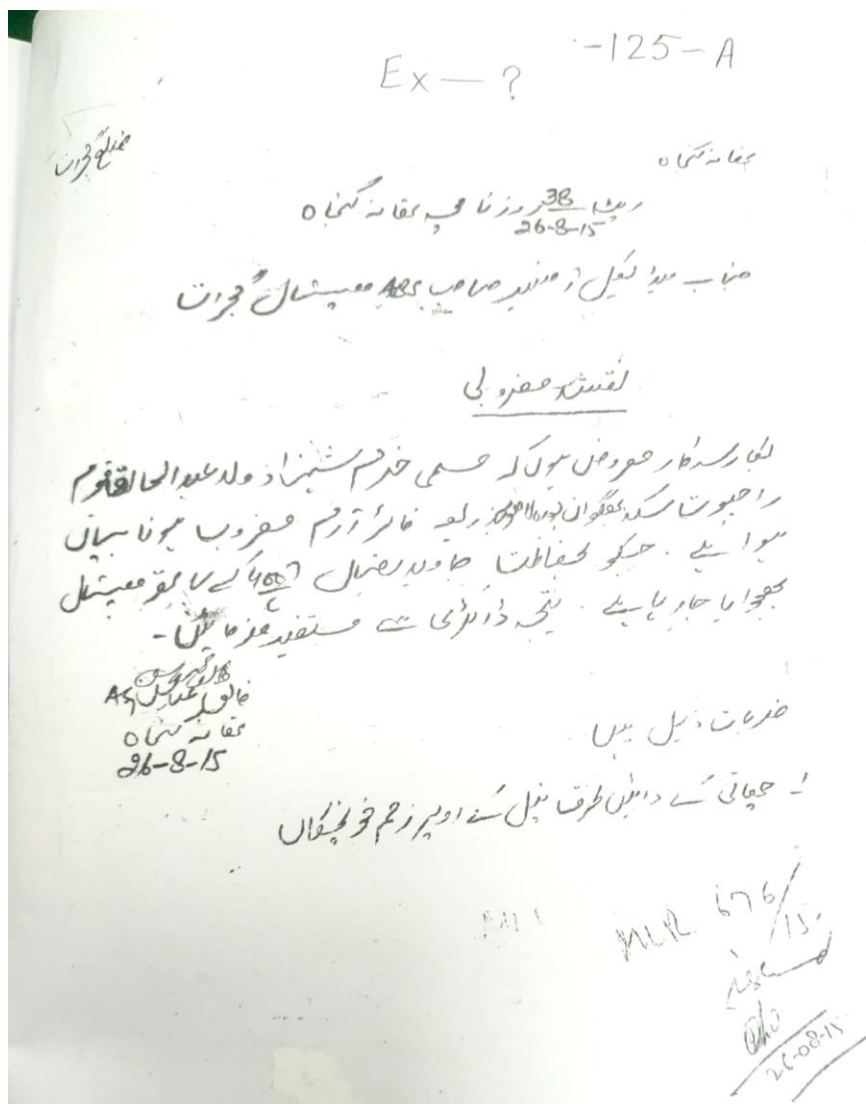 -125-A
Ex — ?
تھانہ کنجاہ
ضلع گجرات
رپٹ 38 روزنامچہ تھانہ کنجاہ
26-8-15
جناب میڈیکل آفیسر صاحب ABS ہسپتال گجرات
نقشہ مضروبی
بکار سرکار معروض ہوں کہ مسمی خرم شہزاد ولد عبدالخالق قوم
راجپوت سکنہ بھگوان پورہ لاہور بذریعہ فائر آرم مضروب ہونا بیان
ہوا ہے ۔ جسکو بحفاظت جاوید اقبال کے ساتھ ہسپتال
بھجوایا جا رہا ہے ۔ نتیجہ ڈاکٹری سے مستفید فرمائیں -
ASI
تھانہ کنجاہ
26-8-15
ضربات ذیل ہیں
1۔ چھاتی کے دائیں طرف نپل کے اوپر زخم خونچکاں
MLR 676/15
26-08-15